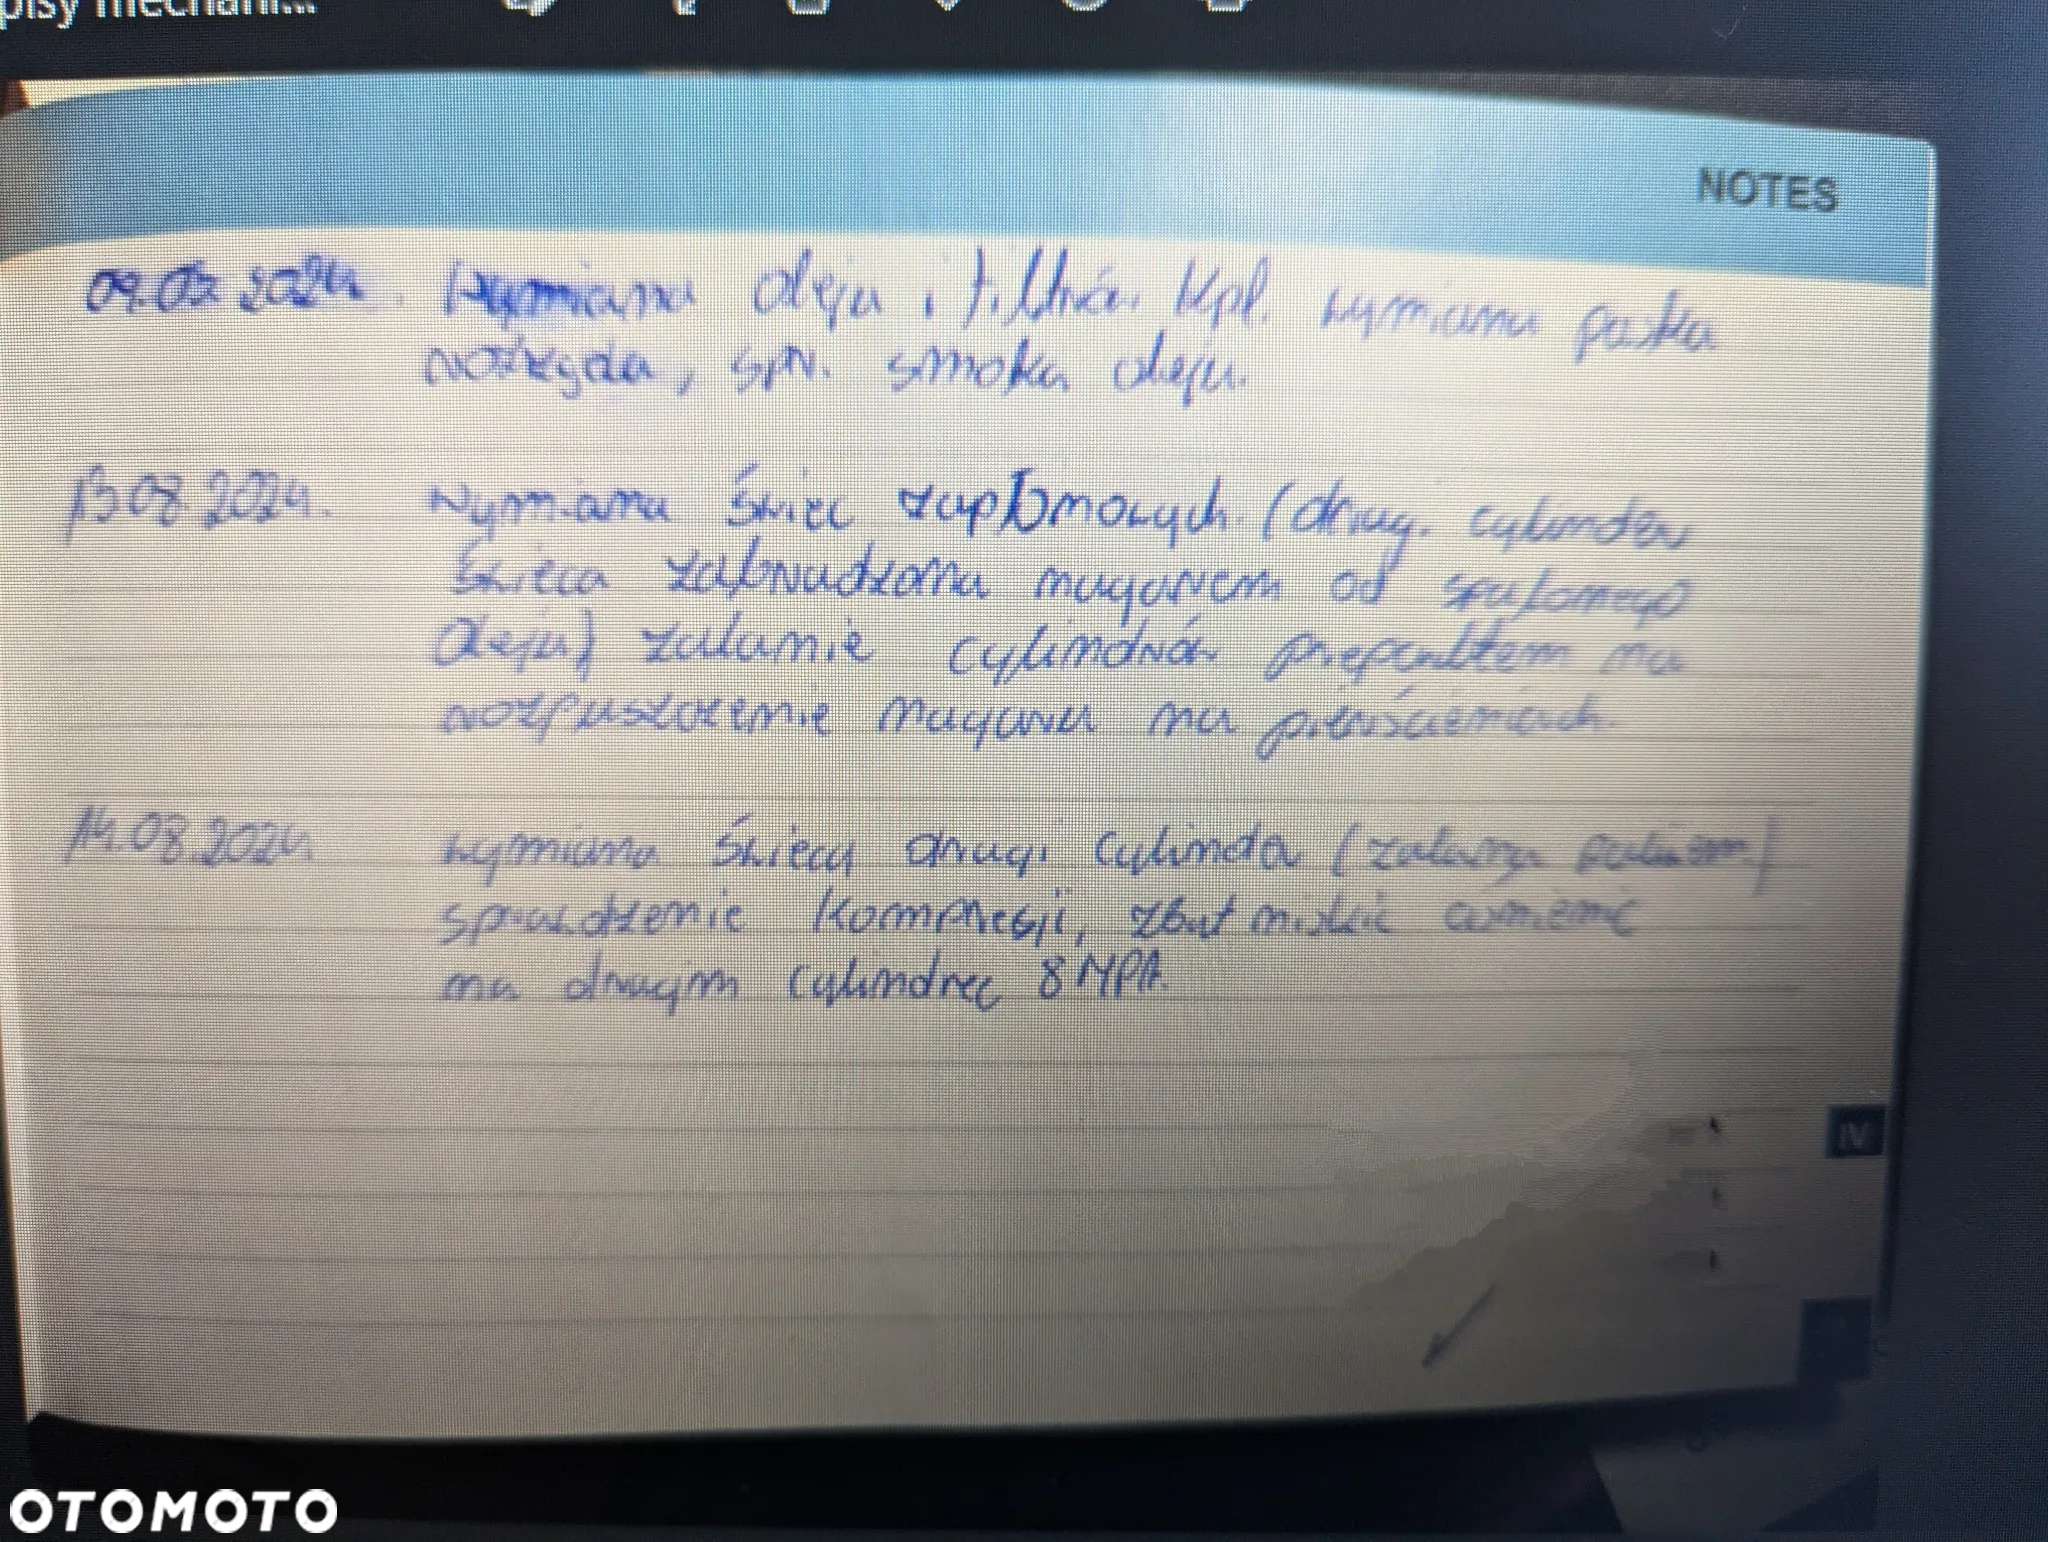 pisy mechani...
NOTES
09.03.2024. Wymiana oleju i filtrów. Kpl. wymiana paska
rozrządu, spr. smoka oleju.
13.08.2024. Wymiana świec zapłonowych. (drugi cylinder
świeca zabrudzona nagarem od spalonego
oleju) zalanie cylindrów preparatem na
rozpuszczenie nagaru na pierścieniach.
14.08.2024. wymiana świecy drugi cylinder (zalana paliwem)
sprawdzenie kompresji, zbyt niskie ciśnienie
na drugim cylindrze 8 MPA.
IV
OTOMOTO